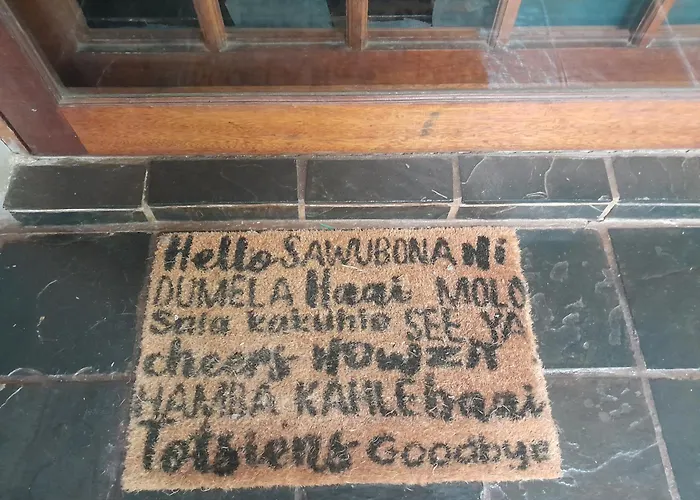 Hello SAWUBONA Hi
DUMELA Haai MOLO
Sala kakuhle SEE YA
cheers HOWZIT
HAMBA KAHLE baai
Totsiens Goodbye